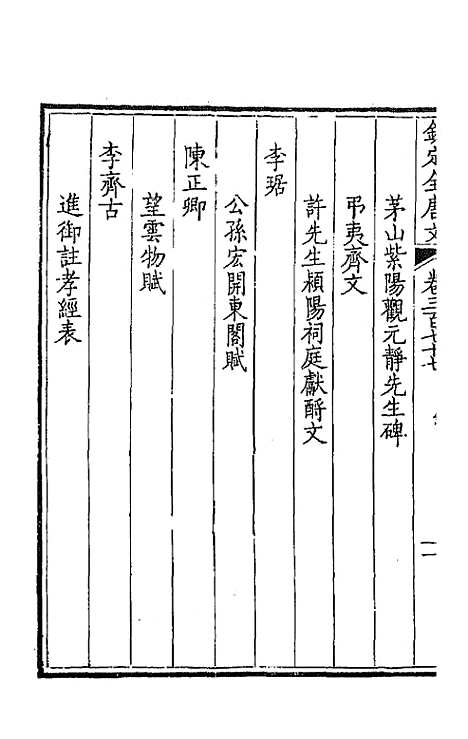 欽定全唐文 卷三百七十七 二
茅山紫陽觀元靜先生碑
弔夷齊文
許先生潁陽祠庭獻酹文
李琚
公孫宏開東閣賦
陳正卿
望雲物賦
李齊古
進御註孝經表